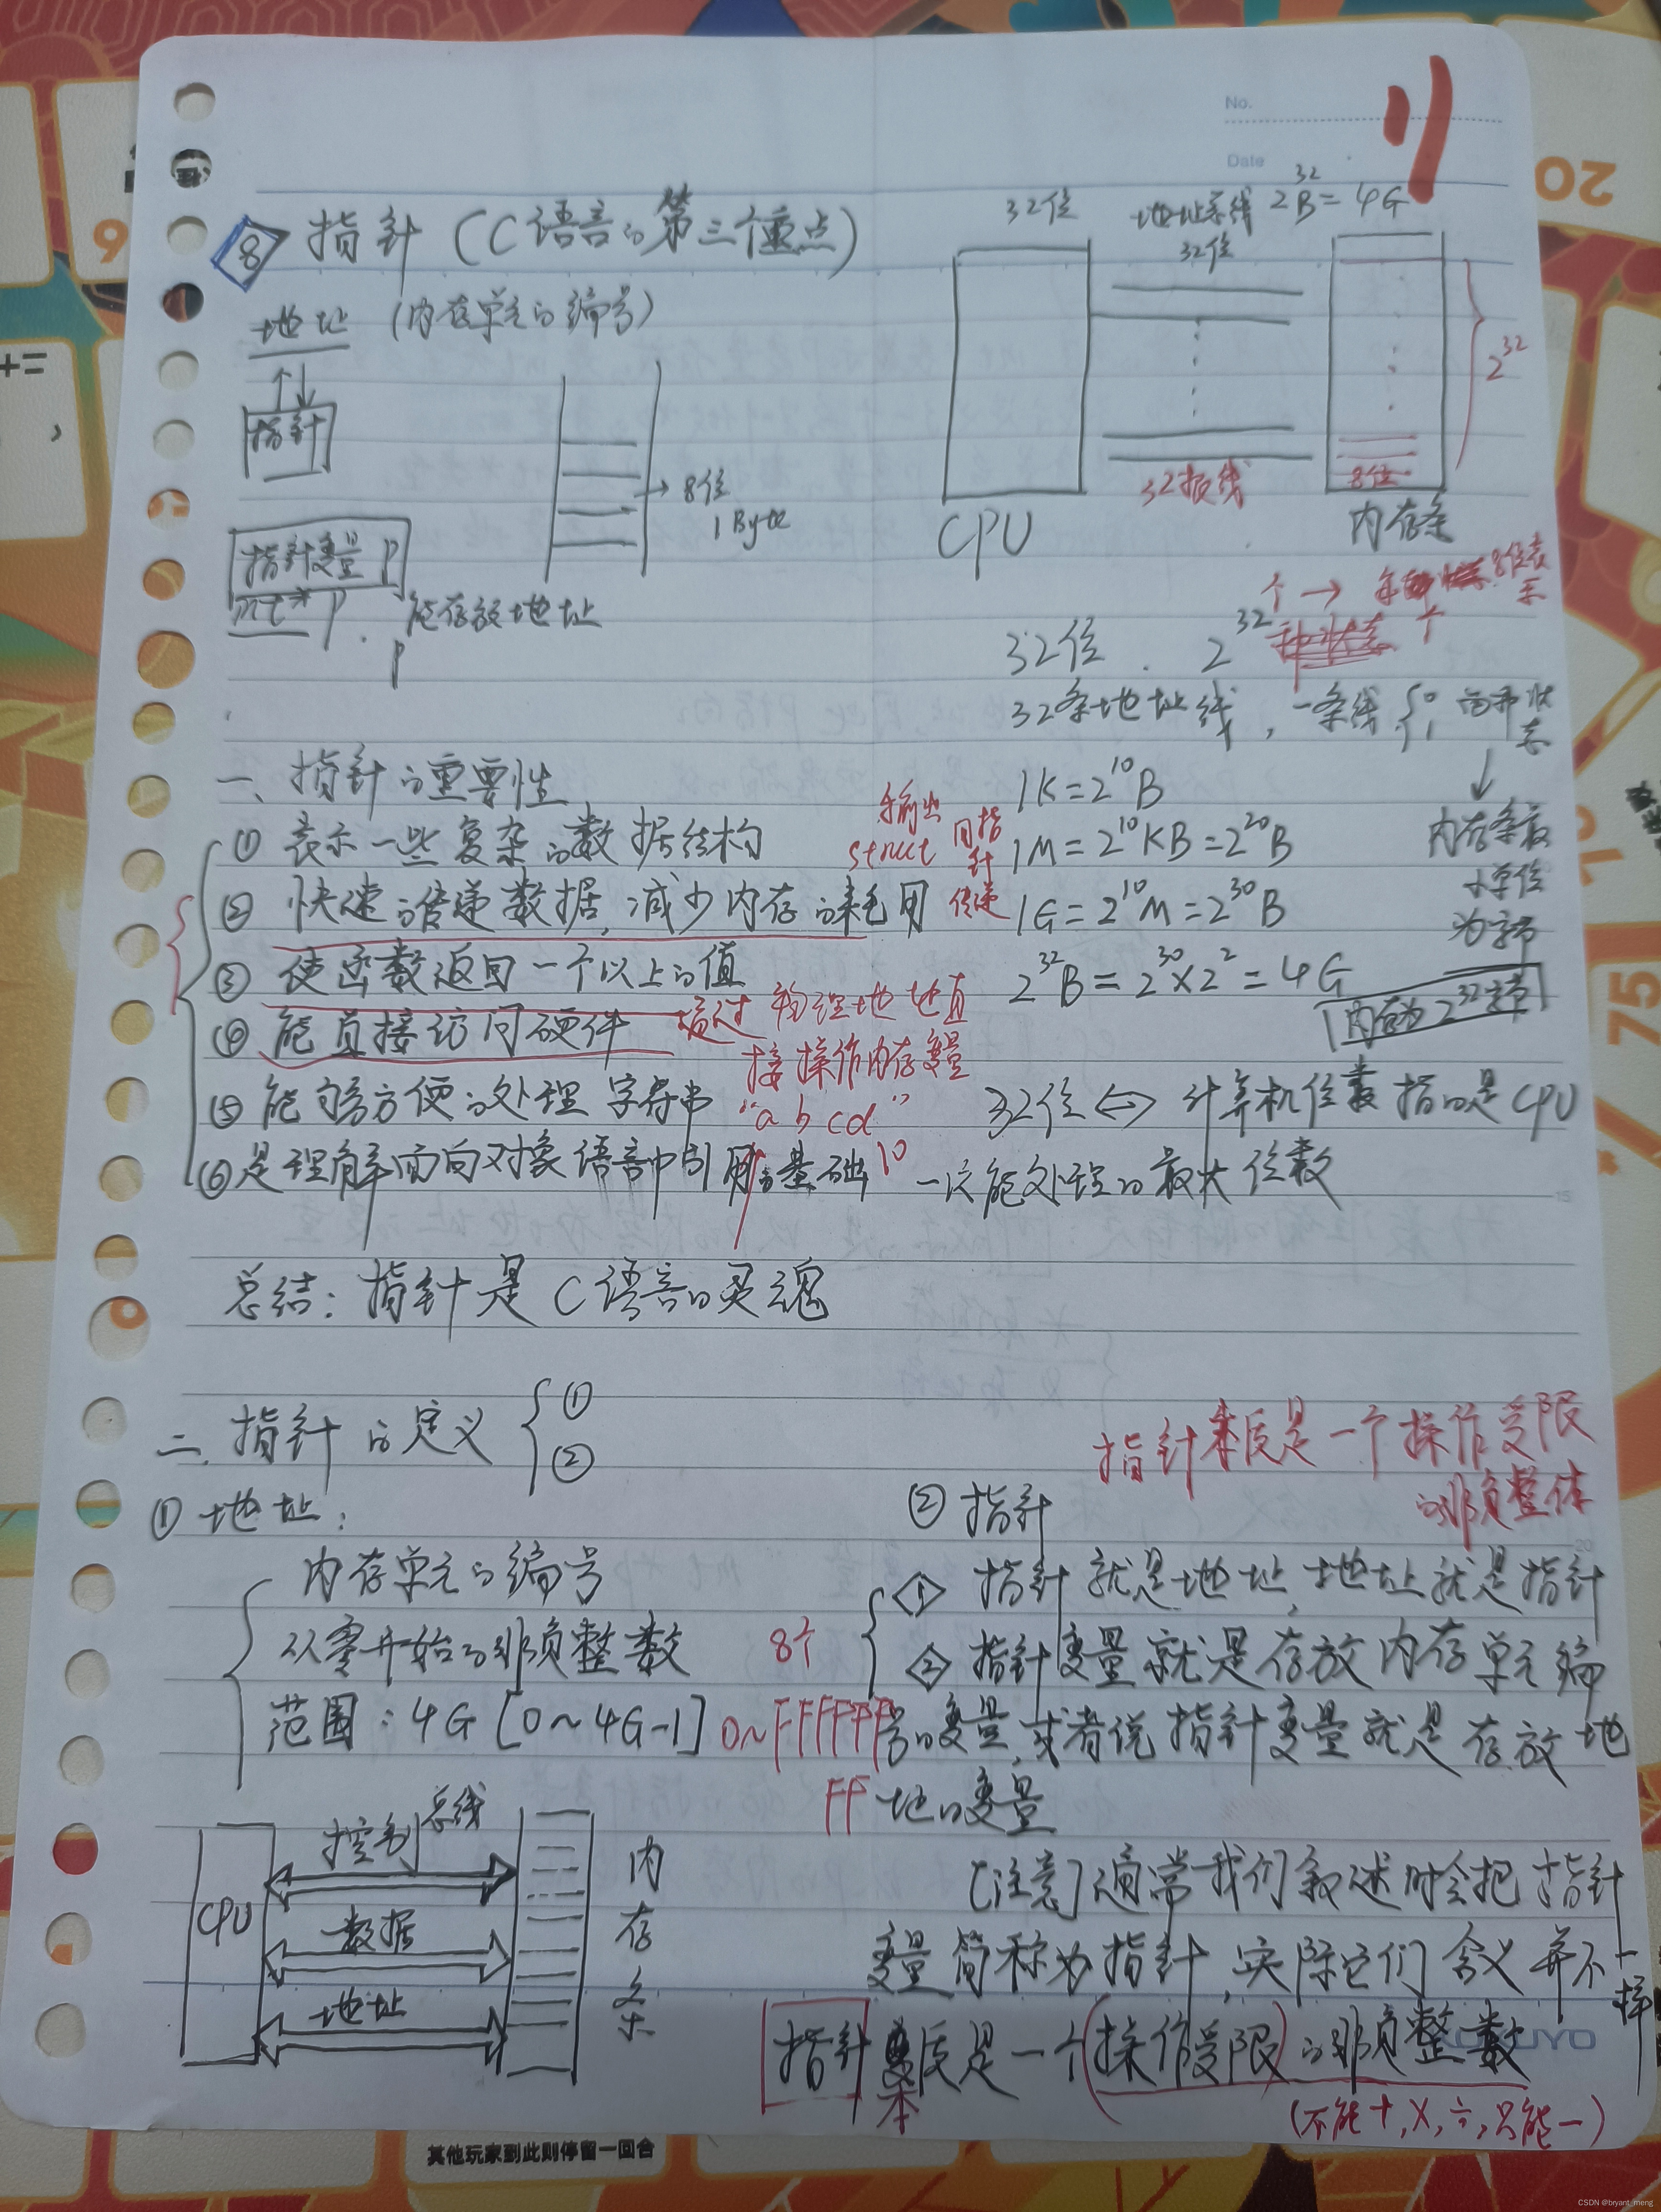 No.
Date
8 指针(C语言的第三个重点)
地址 (内存单元的编号)
指针
→ 8位
1 Byte
指针变量 p
int* p. 能存放地址
p
32位
地址总线
32位
2^32 B = 4G
2^32
32根线
8位
CPU
内存条
32位 . 2^32
个 → 8位表示
32条地址线, 一条线 { 0 1 两种状态
↓
内存条最小单位为字节
内存为2^32字节
1K=2^10 B
1M=2^10 KB=2^20 B
1G=2^10 M=2^30 B
2^32 B=2^30×2^2=4G
32位 ⇔ 计算机位数指的是CPU
一次能处理的最大位数
一、指针的重要性
① 表示一些复杂的数据结构
② 快速的传递数据, 减少内存的耗用
输出
struct 用指针传递
③ 使函数返回一个以上的值
④ 能直接访问硬件
通过物理地址直
接操作内存变量
⑤ 能够方便的处理字符串
"abcd"
⑥ 是理解面向对象语言中引用的基础
10
总结: 指针是C语言的灵魂
二. 指针的定义 { ① ②
① 地址:
内存单元的编号
从零开始的非负整数
范围: 4G [0~4G-1]
8个
0~FFFFFF
FF
指针本质是一个操作受限
的非负整体
② 指针
<1> 指针就是地址, 地址就是指针
<2> 指针变量就是存放内存单元编
号的变量, 或者说指针变量就是存放地
地的变量
[注意] 通常我们叙述时会把指针
变量简称为指针, 实际它们含义并不一样
指针本质是一个(操作受限)的非负整数
(不能+,×,÷,只能-)
CPU
控制 总线
数据
地址
内存条
20
75
其他玩家到此则停留一回合
CSDN @bryant_meng